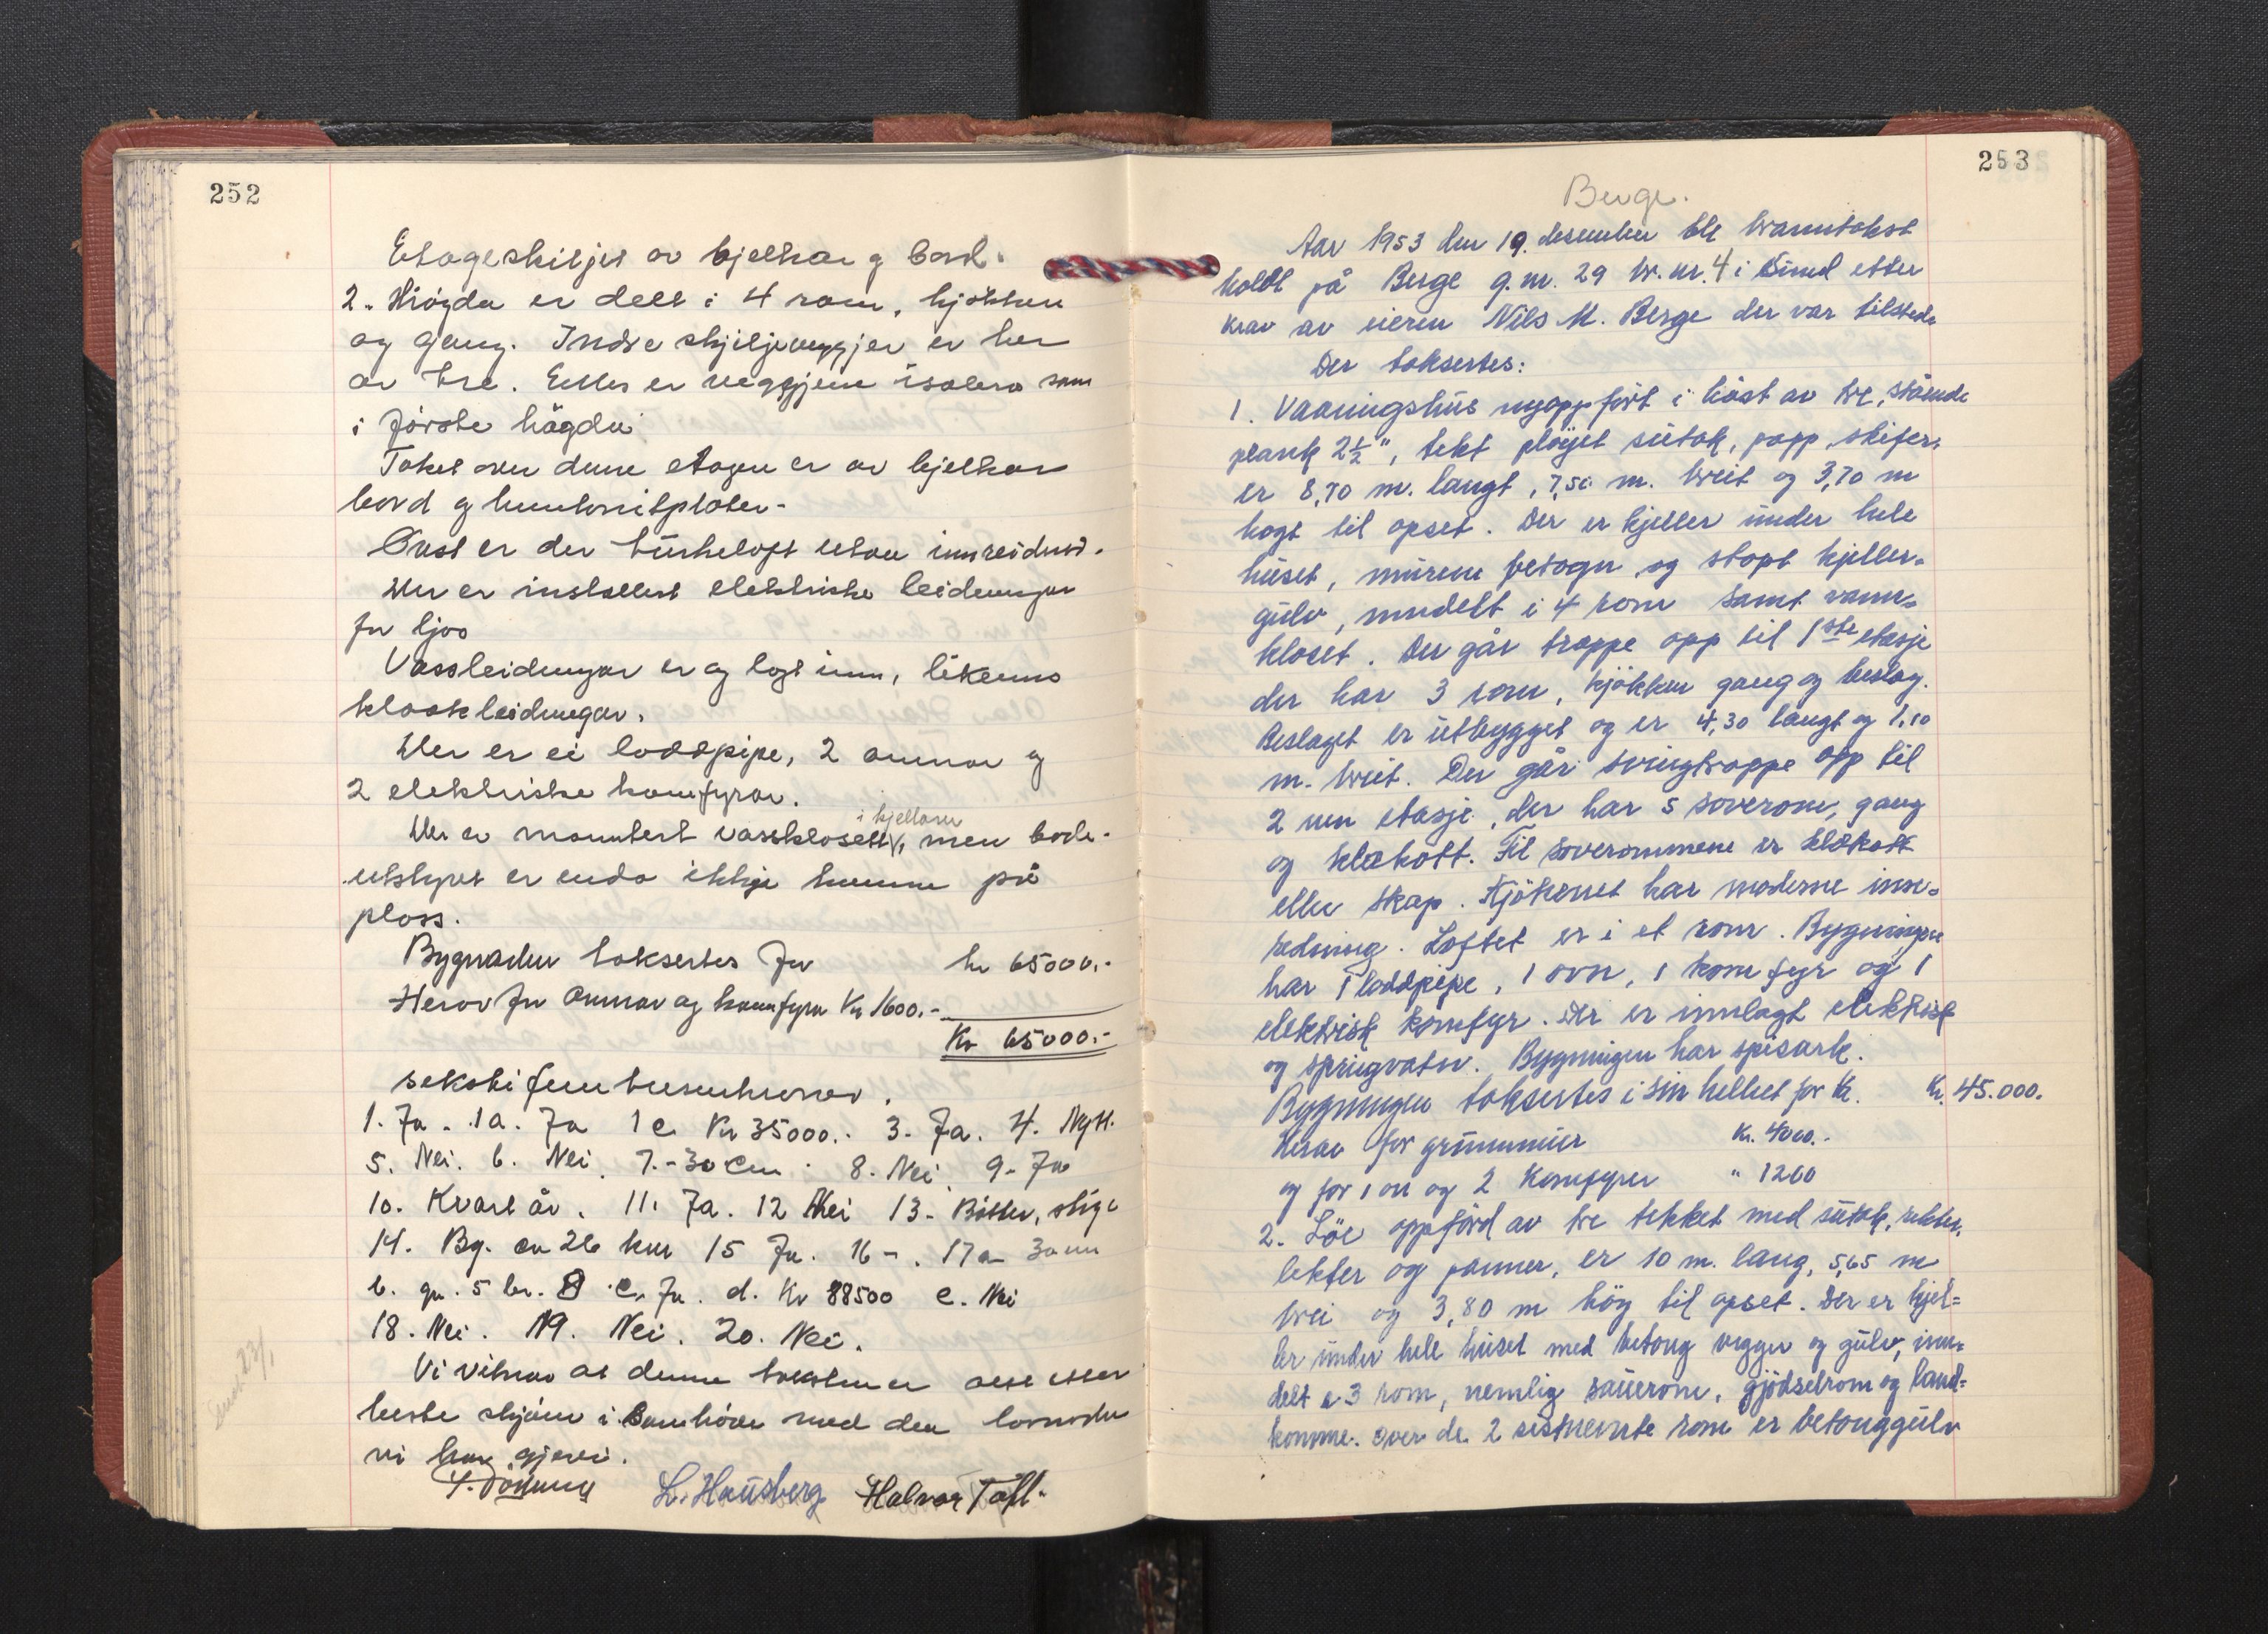 252
Etageskiljet av bjelkar og bord.
2. Högda er delt i 4 rom, kjökken
og gang. Indre skjiljevegjer er her
av tre. Elles er veggjene isolera som
i förste högda
Taket over denne etagen er av bjelkar
bord og huntonitplater.
Øvst er der türkeloft utan innreidnad.
Der er installert elektriske leidningar
for ljos
Vassleidningar er og lagt inn, likeens
kloakleidningar.
Der er ei loddpipe, 2 omnar og
2 elektriske komfyrar.
i kjellaren
Der er montert vassklosett, men bade-
utstyret er enda ikkje komme på
plass.
Bygnaden taksertes for kr 65000.-
Herav for omnar og komfyra Kr 1600.-
Kr 65000.-
sekstifemtusenkroner.
1. Ja. 1a. Ja 1c Kr 35000.- 3. Ja. 4. Nytt.
5. Nei. 6. Nei. 7.- 30 cm. 8. Nei. 9. Ja
10. Kvart år. 11. Ja. 12 Nei 13. Bötter, stige
14. Bg. ca 26 km 15 Ja. 16 -. 17a 30 cm
b. gn. 5 br. 8 c. Ja. d. Kr 88500 e. Nei
18. Nei. 19. Nei. 20. Nei.
Vi vitnar at denne taksten er sett etter
beste skjön i samhöve med den lovnaden
vi har gjevi.
L. Hausberg Halvor Toft.
253
Berge.
Aar 1953 den 19. desember ble branntakst
holdt på Berge g.nr. 29 br.nr. 4 i Sund etter
krav av eieren Nils M. Berge der var tilstede
Der taksertes:
1. Vaaningshus nyoppfört i höst av tre, stående
plank 2½", tekt plöyet sutak, papp, skifer.
er 8,70 m. langt, 7,50 m. breit og 3,70 m
hogt til opset. Der er kjeller under hele
huset, murene betogn og stöpt kjeller-
gulv, inndelt i 4 rom samt vann-
kloset. Der går trappe opp til 1ste etasje
der har 3 rom, kjökken gang og beslag.
Beslaget er utbygget og er 4,30 langt og 1,10
m. breit. Der går svingtrappe opp til
2 nen etasje, der har 5 soverom, gang
og klækott. Til soverommene er klækott
eller skap. Kjökenet har moderne inn-
redning. Loftet er i et rom. Bygningen
har 1 loddpipe, 1 ovn, 1 komfyr og 1
elektrisk komfyr. Der er innlagt elektrisk
og springvatn. Bygningen har spisark.
Bygningen taksertes i sin helhet for Kr. Kr. 45.000.
Herav for grunnmur Kr. 4000.-
og for 1 on og 2 Komfyrer " 1200
2. Löe oppförd av tre tekket med sutak, rekter,
lekter og panner, er 10 m. lang, 5,65 m
brei og 3,80 m hög til opset. Der er kjel=
ler under hele huset med betong vegger og gulv, inn-
delt i 3 rom, nemlig sauerom, gjödselrom og land=
komme. Over de 2 sistnevnte rom er betonggulv